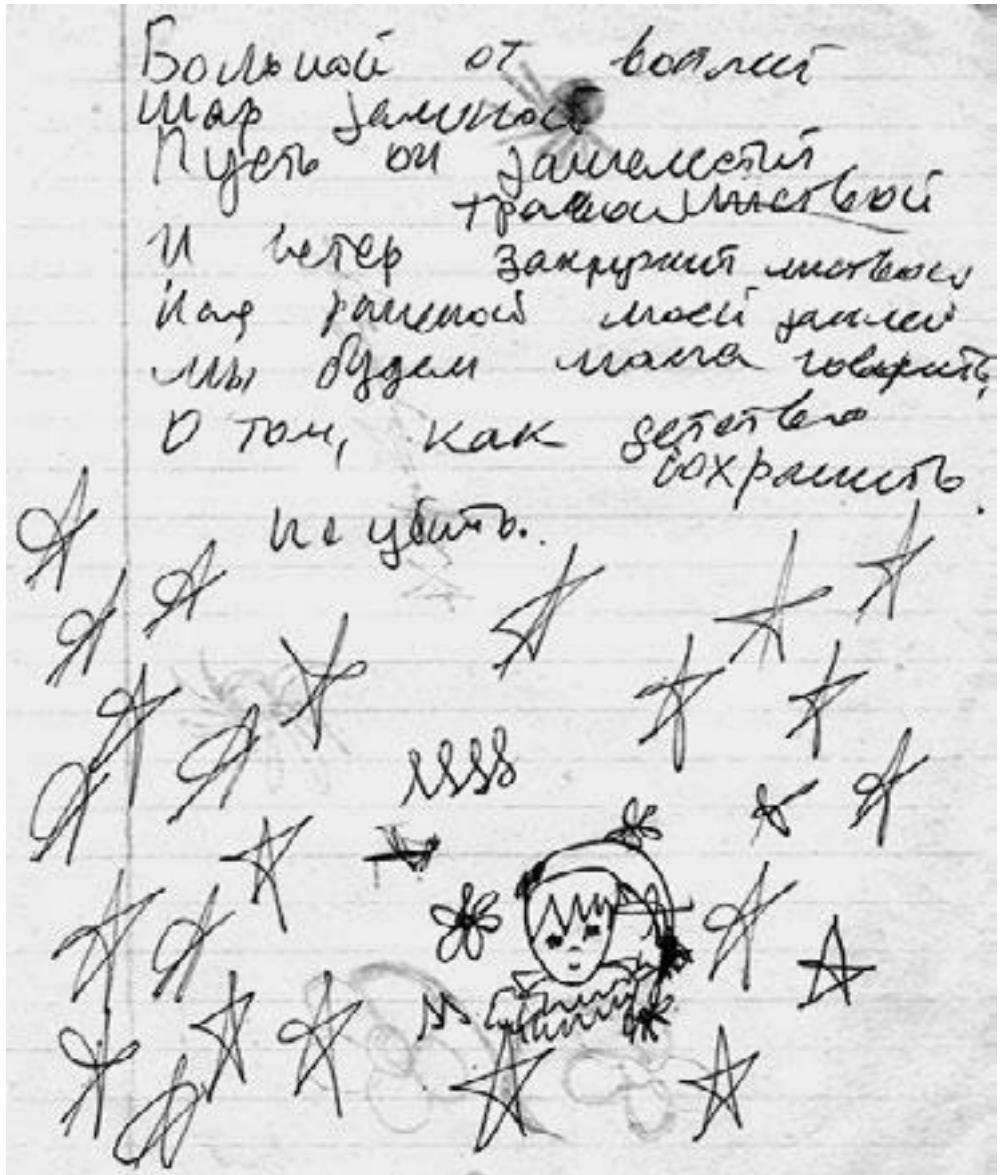 Больной от воплей
шар земной
Пусть он зашелестит
травой листвой
И ветер закружит листвою
Над раненой моей землей
мы будем мама говорить,
О том, как детство
сохранить
Не убить.